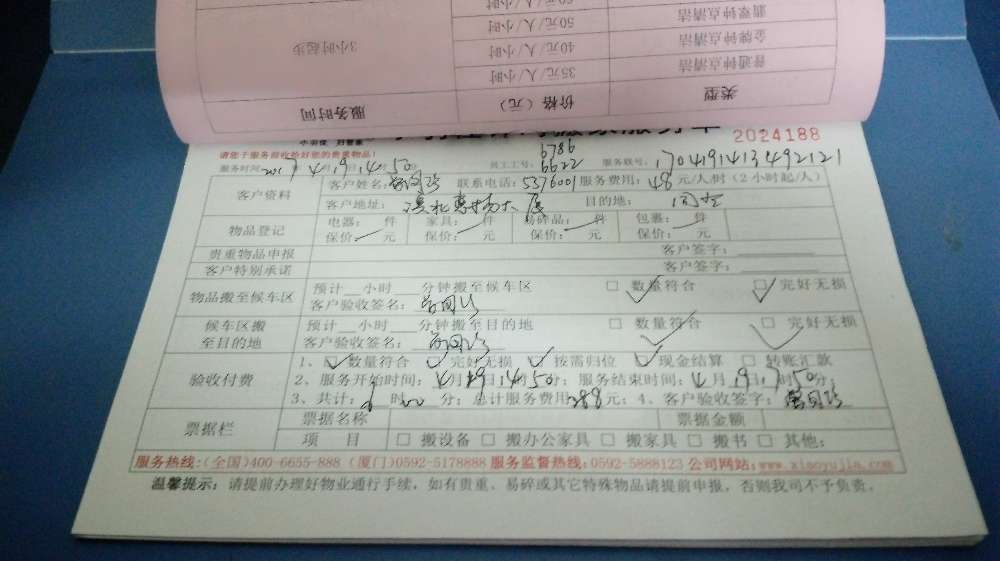 3小时起步 50元/人/小时 翡翠钟点清洁
50元/人/小时 金牌钟点清洁
40元/人/小时 金牌钟点清洁
35元/人/小时 普通钟点清洁
服务时间 价格(元) 类型
2024188
请您于服务前收拾好您的贵重物品!
6786
员工工号: 6622 服务联号: 1704191413492121
服务时间: 2017 4 19 14 50
客户资料 客户姓名: 联系电话: 5376001 服务费用: 48 元/人/时 (2小时起/人)
客户地址: 目的地:
物品登记 电器: 件 家具: 件 易碎品: 件 包裹: 件
保价: 元 保价: 元 保价: 元 保价: 元
贵重物品申报 客户签字:
客户特别承诺 客户签字:
物品搬至候车区 预计__小时__分钟搬至候车区 □ 数量符合 □ 完好无损
客户验收签名:
候车区搬至目的地 预计__小时__分钟搬至目的地 □ 数量符合 □ 完好无损
客户验收签名:
验收付费 1、□ 数量符合 □ 完好无损 □ 按需归位 □ 现金结算 □ 转账汇款
2、服务开始时间: 4月19日14时50分; 服务结束时间: 4月19日17时50分;
3、共计: 时00分; 总计服务费用288元; 4、客户验收签字:
票据栏 票据名称 票据金额
项 目 □ 搬设备 □ 搬办公家具 □ 搬家具 □ 搬书 □ 其他:
服务热线:(全国)400-6655-888 (厦门)0592-5178888 服务监督热线:0592-5888123 公司网站:www.xiaoyujia.com
温馨提示: 请提前办理好物业通行手续, 如有贵重、易碎或其它特殊物品请提前申报, 否则我司不予负责。